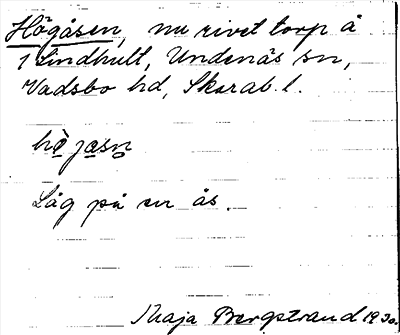 Högåsen, nu rivet torp å
1 Lindhult, Undenäs sn,
Vadsbo hd, Skarab. l.
hö̀jasn̥
Låg på en ås.
Maja Bergstrand 1930.